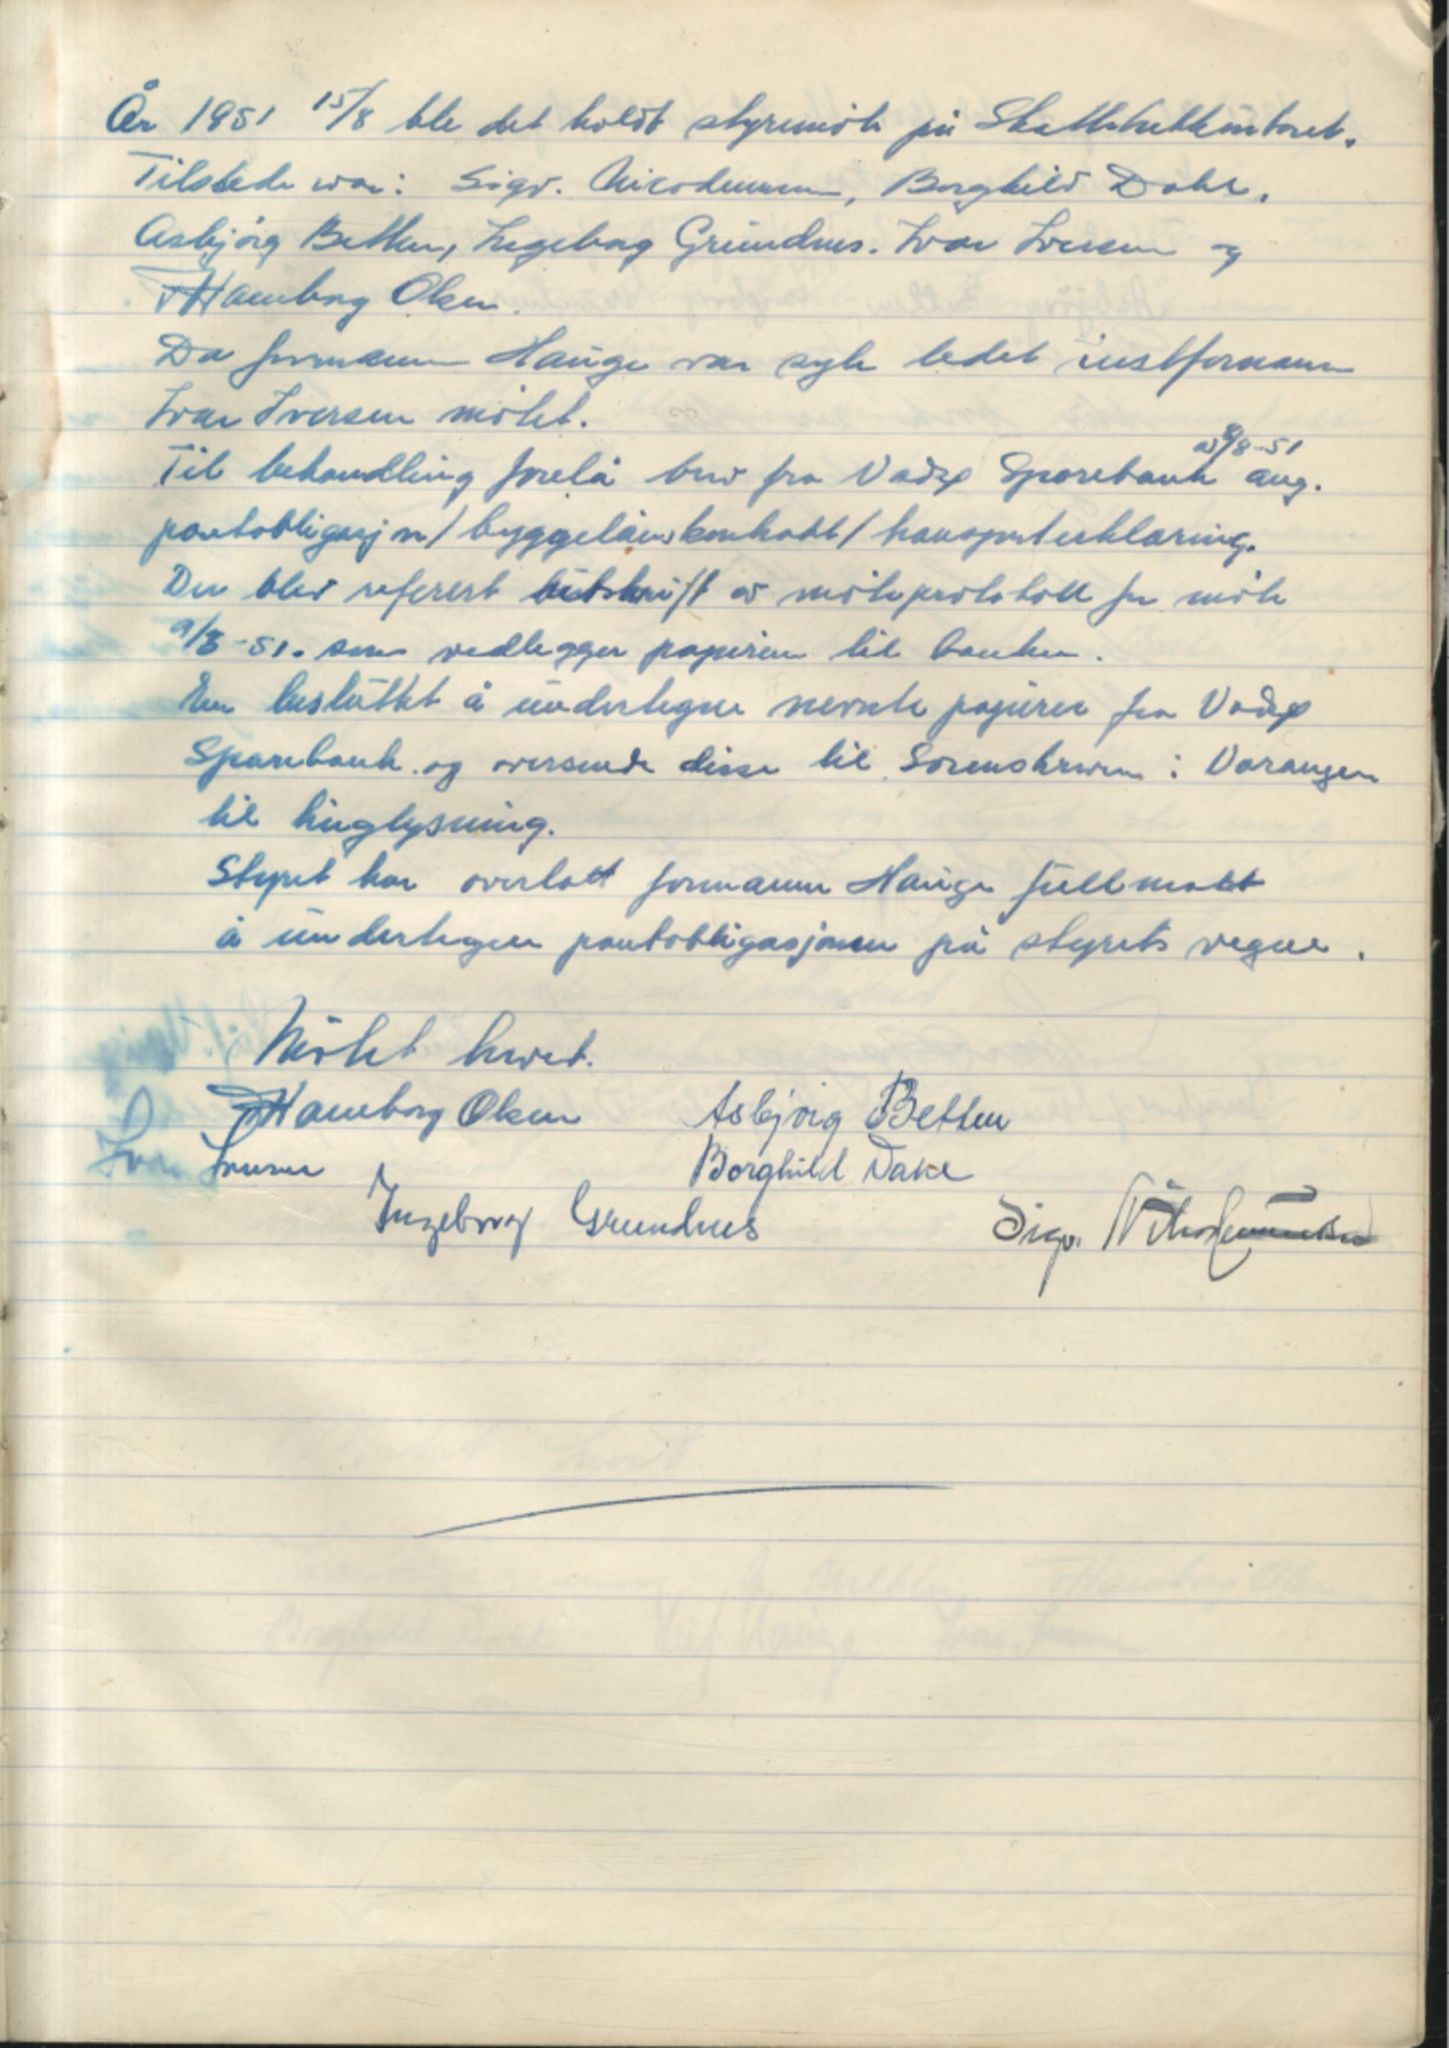 År 1951 15/8 ble det holdt styremöte på Skattefutkontoret.
Tilstede var: Sigv. Nicodemusen, Borghild Dahl,
Asbjörg Betten, Ingeborg Grundnes. Ivar Iversen og
Hamborg Olsen.
Da formann Hauge var syk ledet nestformann
Ivar Iversen mötet.
Til behandling forelå brev fra Vadsø Sparebank av 8/8-51 ang.
pantobligasjon/byggelånskontrakt/transporterklæring.
Der blev referert utskrift av möteprotokoll fra möte
9/8-51. som vedlegges papirene til banken.
En besluttet å undertegne nevnte papirer fra Vadsø
Sparebank og oversende disse til Sorenskriveren i Varanger
til tinglysning.
Styret har overlatt formann Hauge fullmakt
å undertegne pantobligasjonen på styrets vegne.
Mötet hevet.
Hamborg Olsen Asbjörg Betten
Ivar Iversen Borghild Dahl
Ingeborg Grundnes Sigv. Nikodemussen